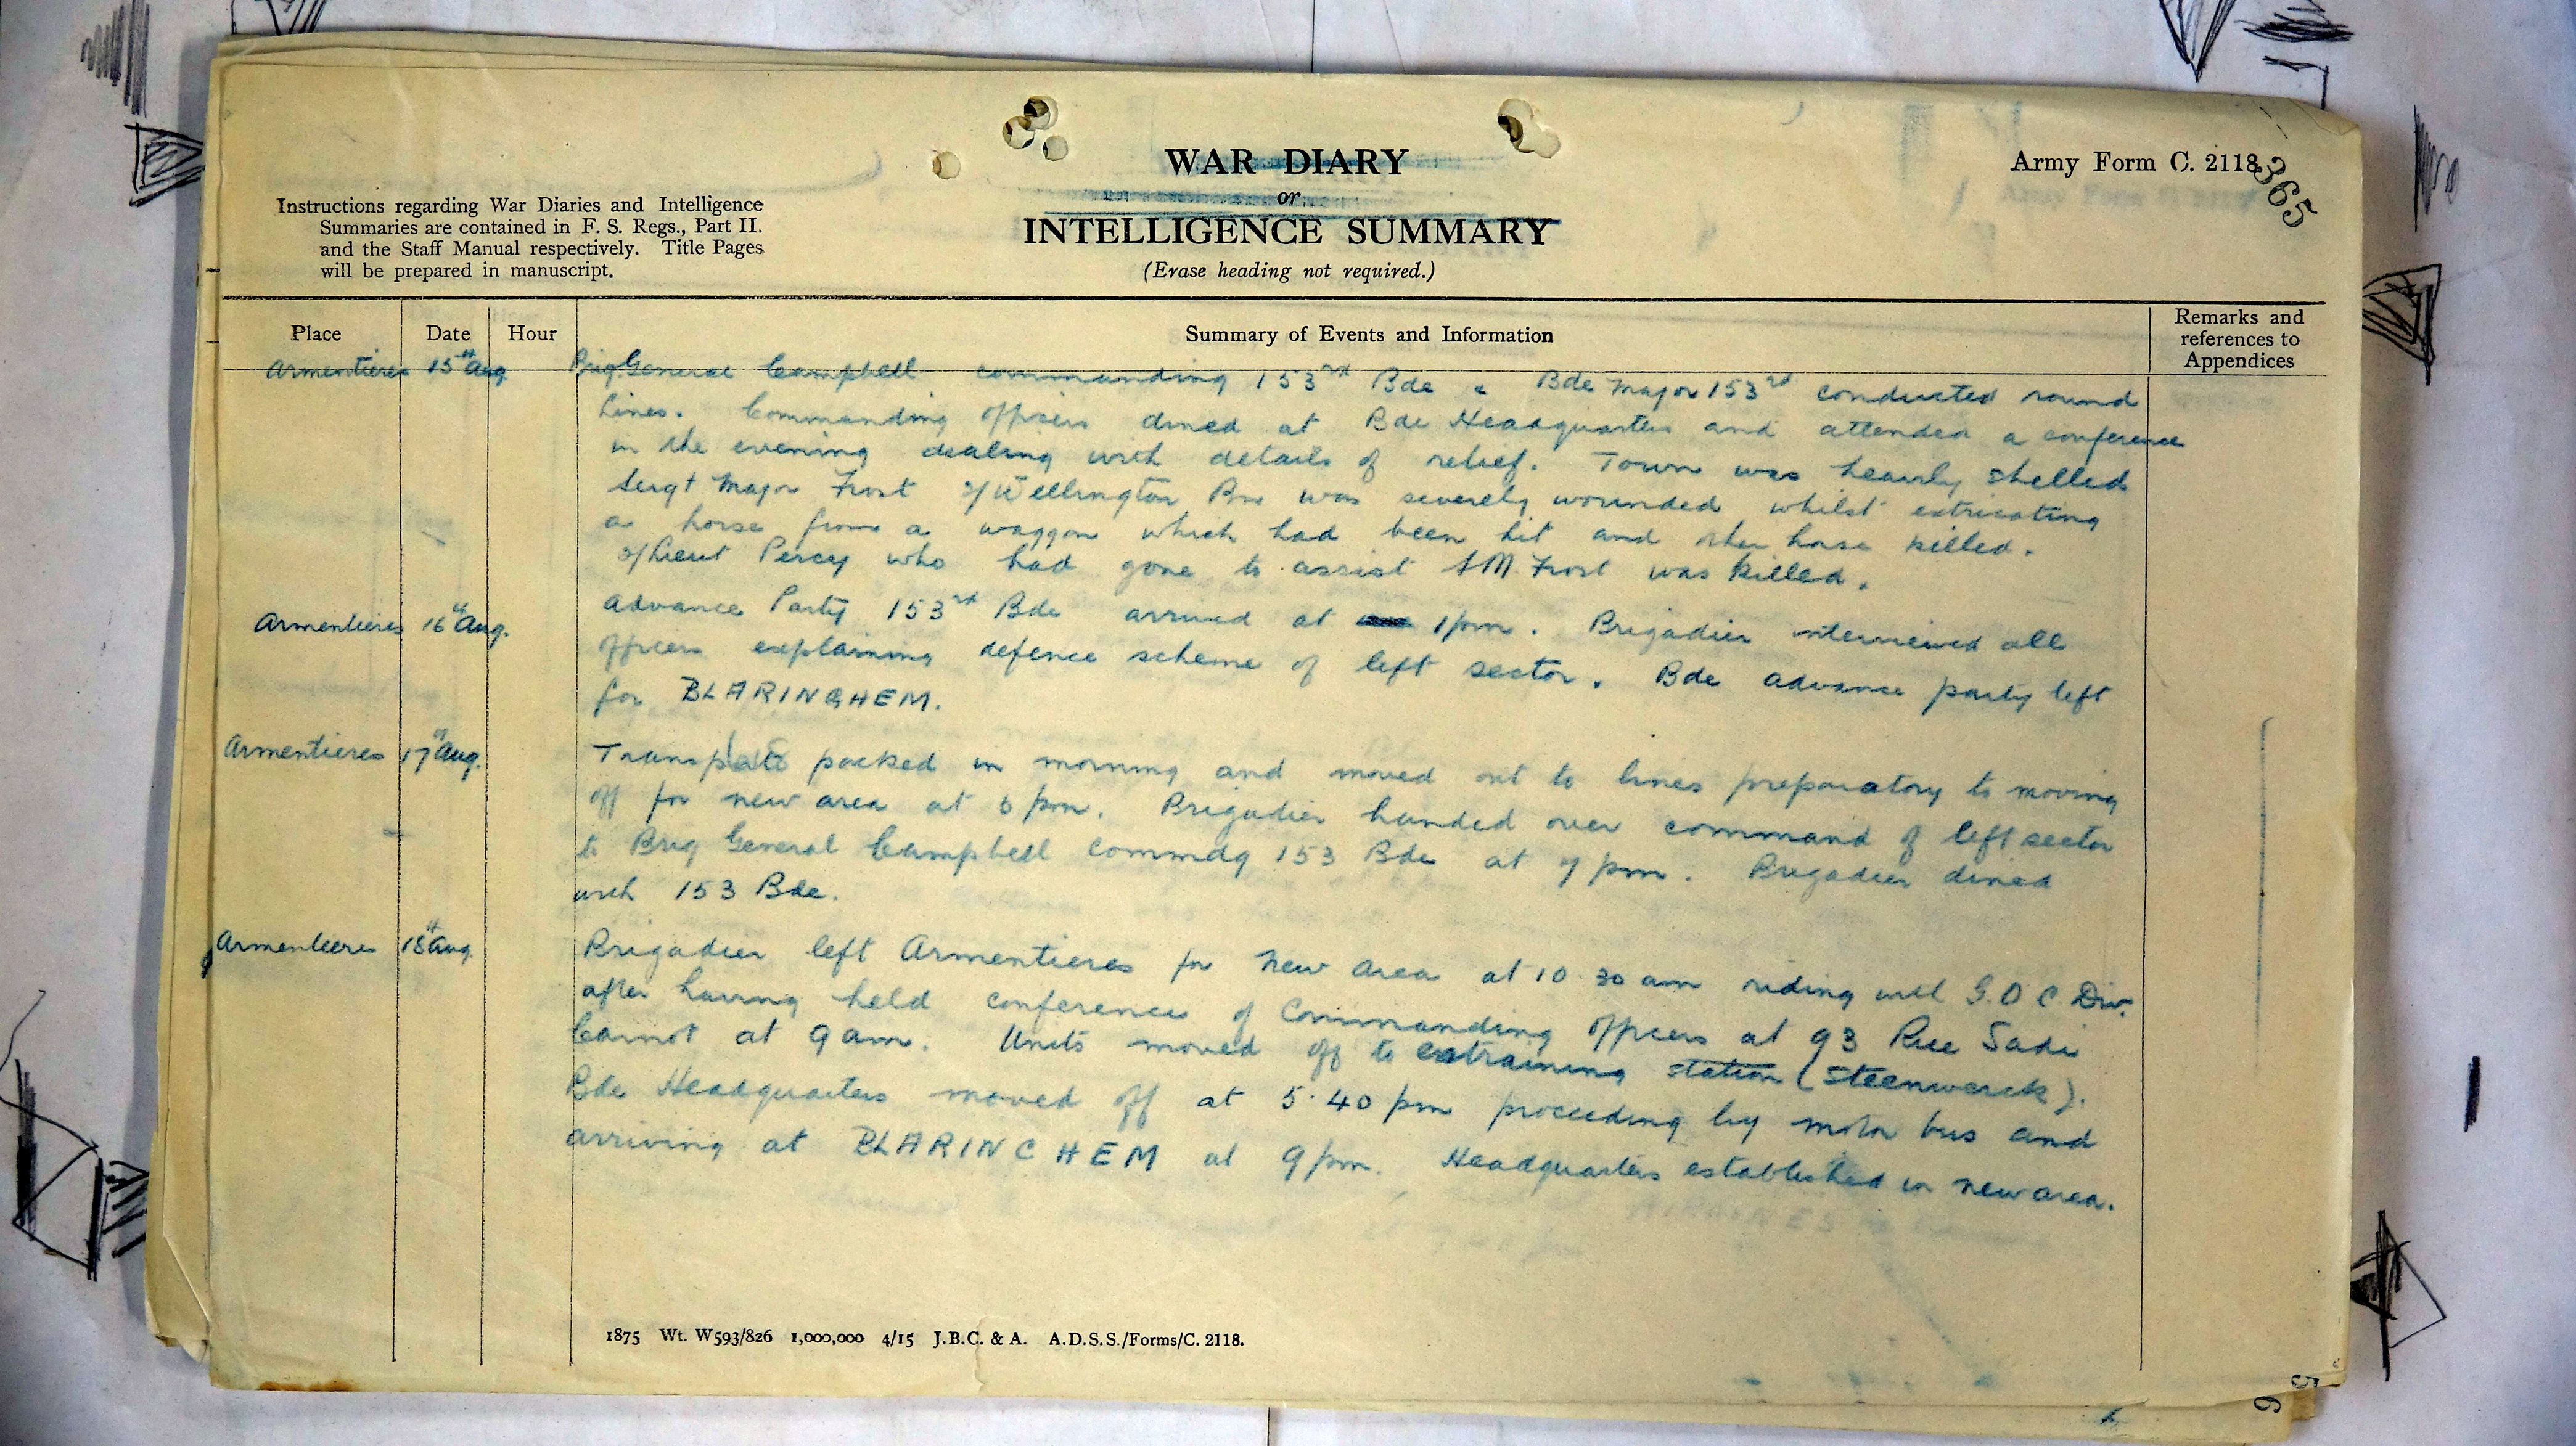 WAR DIARY
or
INTELLIGENCE SUMMARY
(Erase heading not required.)
Army Form C. 2118
365
Instructions regarding War Diaries and Intelligence
Summaries are contained in F. S. Regs., Part II.
and the Staff Manual respectively. Title Pages
will be prepared in manuscript.
Place Date Hour Summary of Events and Information Remarks and
references to
Appendices
Armentieres 15th Aug Brig General Campbell commanding 153rd Bde & Bde Major 153rd conducted round
lines. Commanding officers dined at Bde Headquarters and attended a conference
in the evening dealing with details of relief. Town was heavily shelled
Sergt Major Frost 2/Wellington Bn was severely wounded whilst extricating
a horse from a waggon which had been hit and other horse killed.
2/Lieut Percy who had gone to assist SM Frost was killed.
Armentieres 16th Aug. Advance Party 153rd Bde arrived at 1pm. Brigadier interviewed all
officers explaining defence scheme of left sector. Bde advance party left
for BLARINGHEM.
Armentieres 17th Aug. Transport packed in morning and moved out to lines preparatory to moving
off for new area at 6 pm. Brigadier handed over command of left sector
to Brig General Campbell commdg 153 Bde at 7 pm. Brigadier dined
with 153 Bde.
Armentieres 18th Aug. Brigadier left Armentieres for new area at 10.30 am riding with G.O.C. Div.
after having held conference of Commanding Officers at 93 Rue Sadi
Carnot at 9 am. Units moved off to entraining station (Steenwerck).
Bde Headquarters moved off at 5.40 pm proceeding by motor bus and
arriving at BLARINCHEM at 9 pm. Headquarters established in new area.
1875 Wt. W593/826 1,000,000 4/15 J.B.C. & A. A.D.S.S./Forms/C. 2118.